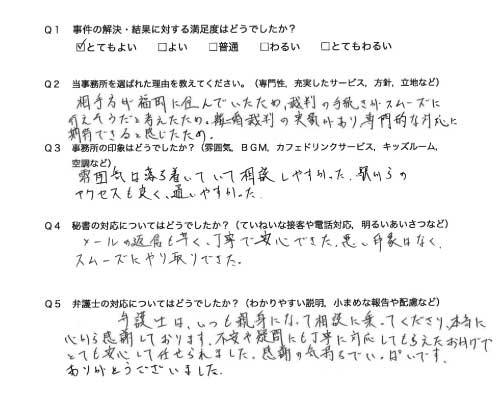 Q1 事件の解決・結果に対する満足度はどうでしたか?
☑とてもよい □よい □普通 □わるい □とてもわるい
Q2 当事務所を選ばれた理由を教えてください。(専門性、充実したサービス、方針、立地など)
相手方が福岡に住んでいたため、裁判の手続きがスムーズに
行えそうだと考えたため。離婚裁判の実績があり、専門的な対応に
期待できると感じたため。
Q3 事務所の印象はどうでしたか?(雰囲気、BGM、カフェドリンクサービス、キッズルーム、
空調など)
雰囲気は落ち着いていて相談しやすかった。駅からの
アクセスも良く、通いやすかった。
Q4 秘書の対応についてはどうでしたか?(ていねいな接客や電話対応、明るいあいさつなど)
メールの返信も早く、丁寧で安心できた。悪い印象はなく、
スムーズにやり取りできた。
Q5 弁護士の対応についてはどうでしたか?(わかりやすい説明、小まめな報告や配慮など)
弁護士は、いつも親身になって相談に乗ってくださり、本当に
心から感謝しております。不安や疑問にも丁寧に対応してもらえたおかげで
とても安心して任せられました。感謝の気持ちでいっぱいです。
ありがとうございました。